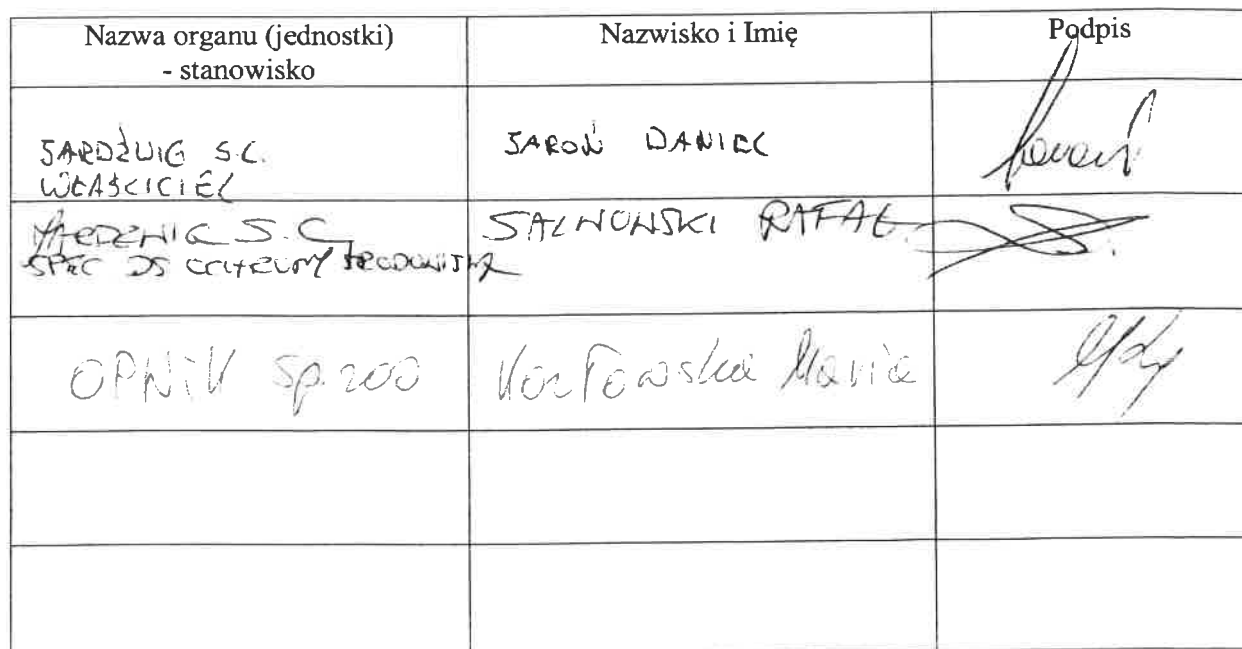 Nazwa organu (jednostki)
- stanowisko
Nazwisko i Imię
Podpis
SARDŹWIG S.C.
WŁAŚCICIEL
SAROŃ DANIEL
S.C.
SPEC DS OCHRONY ŚRODOWISKA
SALWOWSKI RAFAŁ.
OPNiK Sp. zoo
Kozłowska Maria